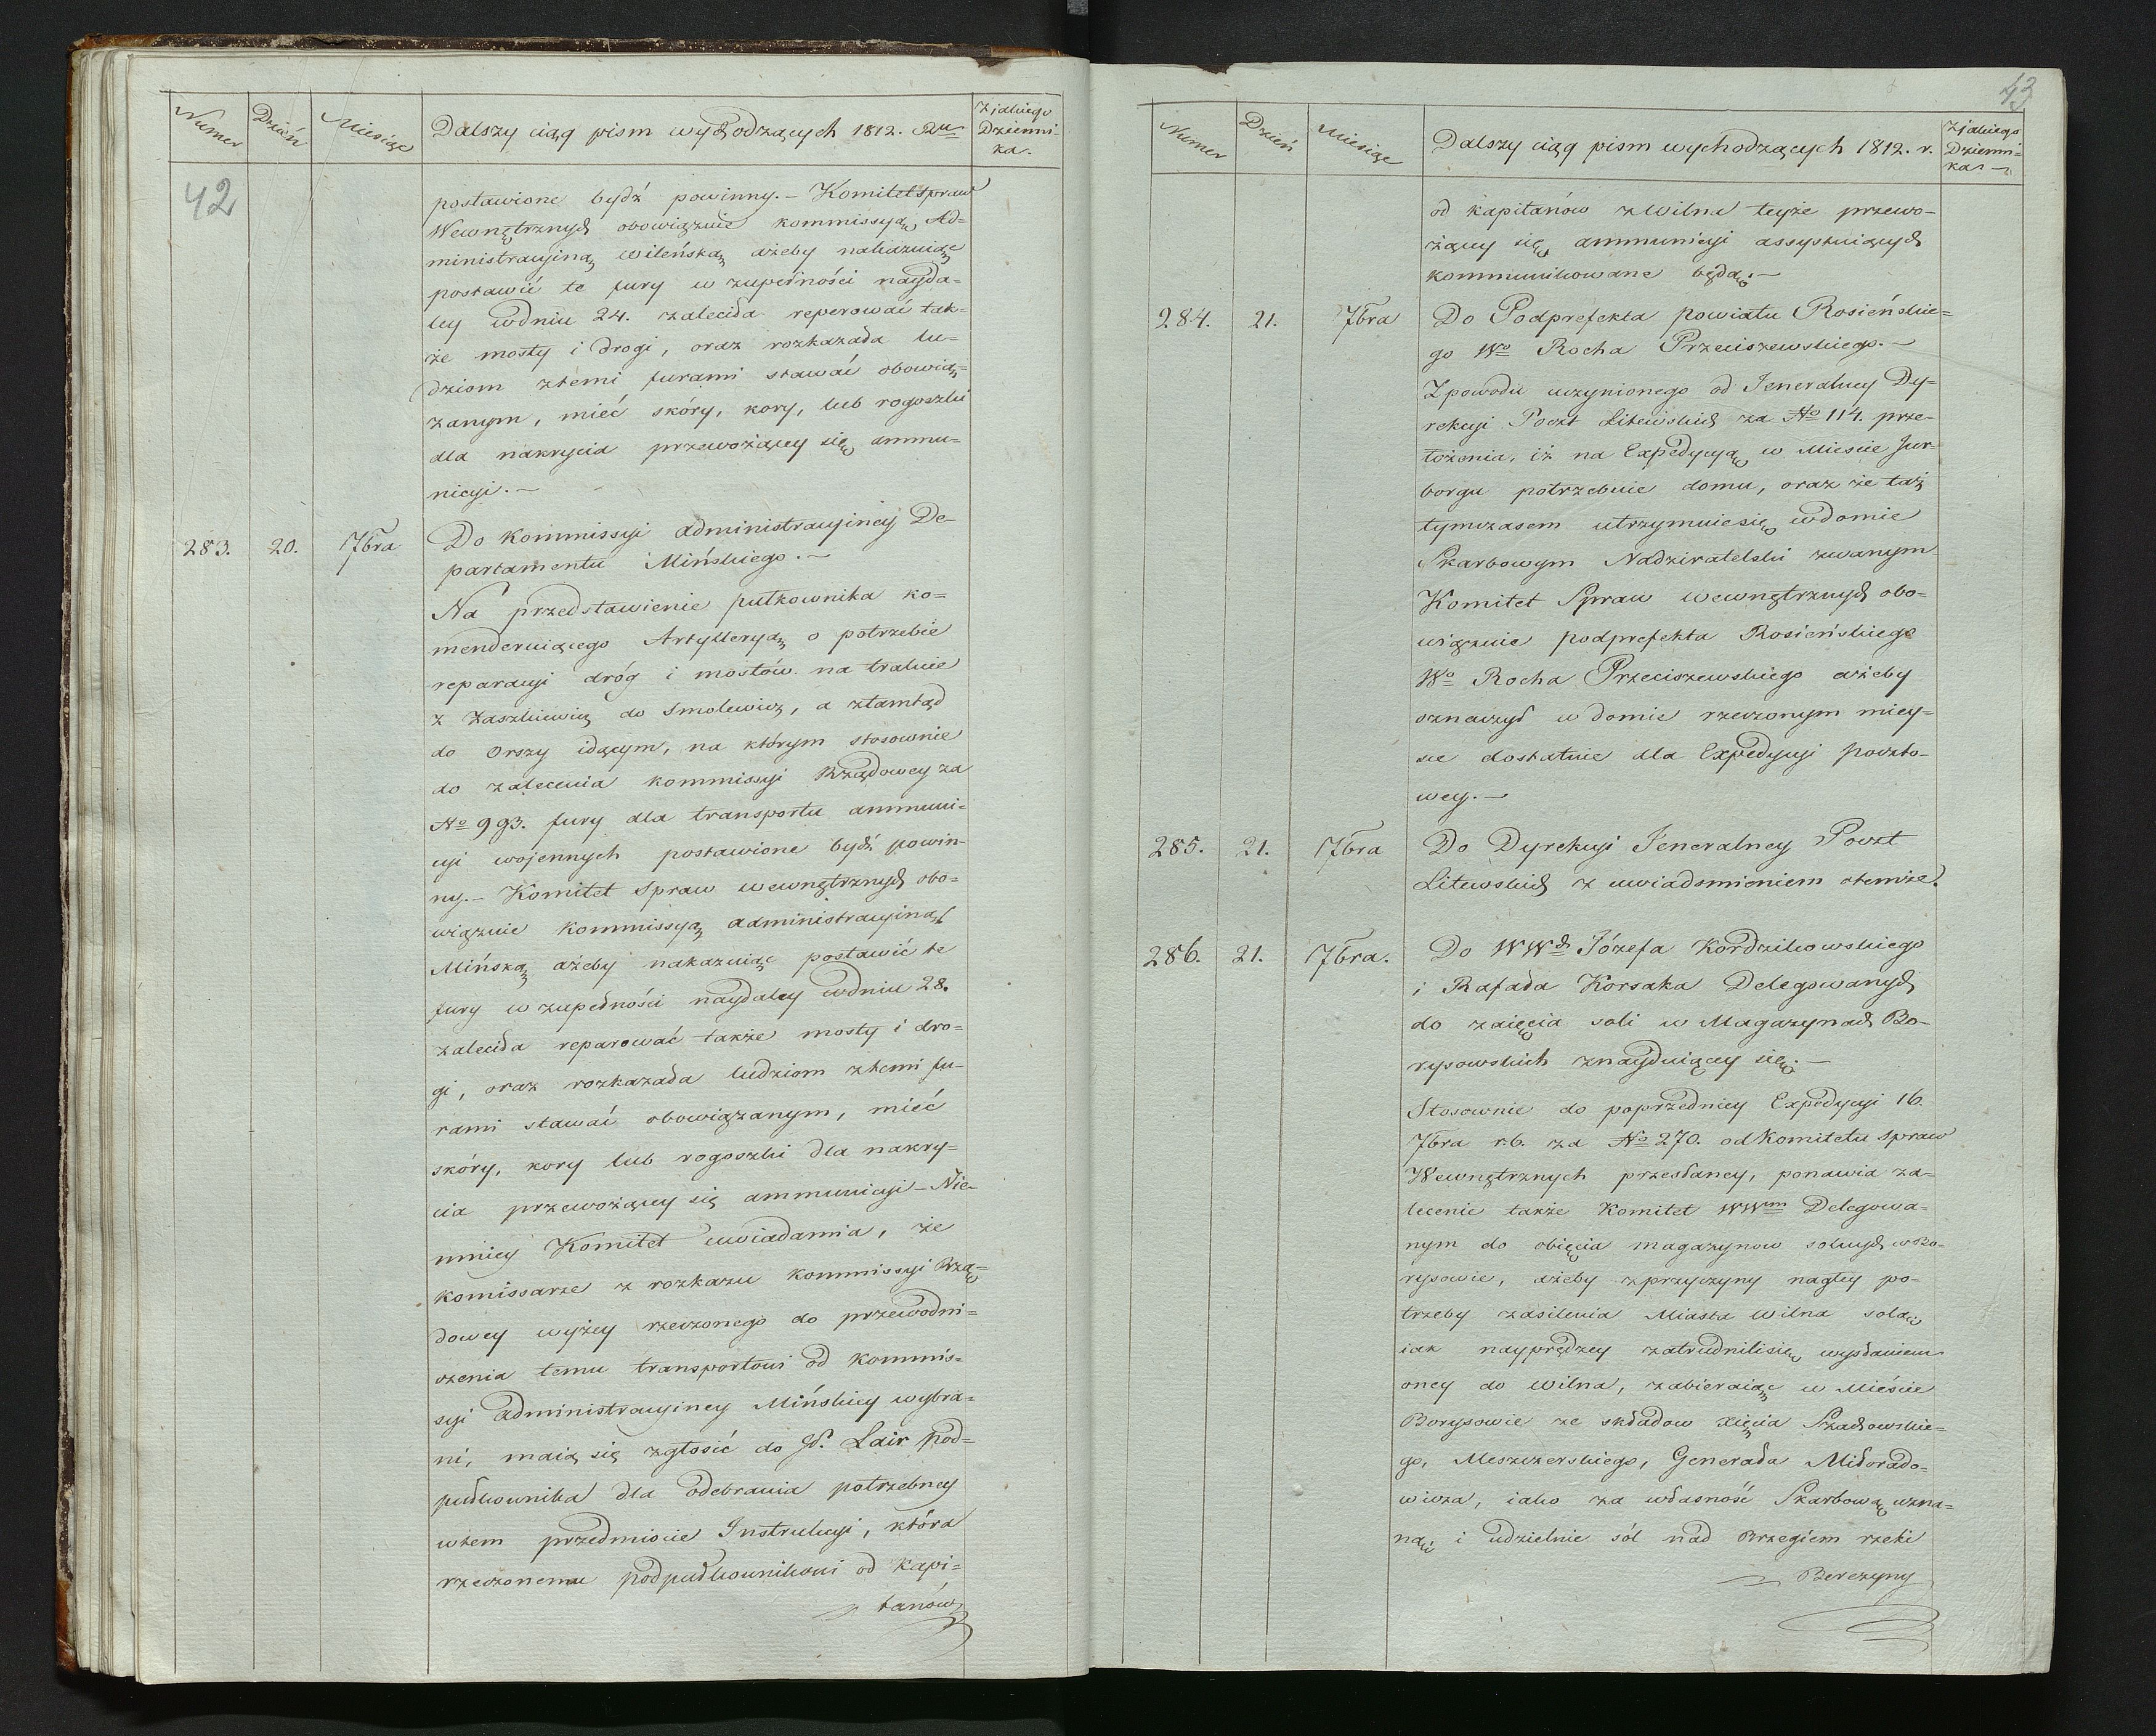 Numer Dzień Miesiąc Dalszy ciąg pism wychodzących 1812. Ru Z jakiego Dzienni-
ka.
42
postawione bydź powinny. – Komitet spraw
Wewnętrznych obowiązuie kommissyą Ad=
ministracyiną wileńską ażeby nakazuiąc
postawić te fury w zupełności nayda=
ley w dniu 24. zaleciła reperować tak=
że mosty i drogi, oraz rozkazała lu=
dziom z temi furami stawać obowią=
zanym, mieć skóry, kory, lub rogoszki
dla nakrycia przewożącey się ammu=
nicyi. –
283. 20. 7bra Do Kommissyi administracyiney De-
partamentu Mińskiego. –
Na przedstawienie pułkownika ko=
menderuiącego Artylleryą o potrzebie
reparacyi dróg i mostów na trakcie
z Zaszkiewicz do Smolewicz, a ztamtąd
do Orszy idącym, na którym stosownie
do zalecenia kommissyi Rządowey za
No 993. fury dla transportu ammuni=
cyi wojennych postawione bydź powin=
ny. – Komitet Spraw wewnętrznych obo=
wiązuie Kommissyą administracyiną
Mińską ażeby nakazuiąc postawić te
fury w zupełności naydaley w dniu 28.
zaleciła reparować także mosty i dro=
gi, oraz rozkazała ludziom z temi fu-
rami stawać obowiązanym, mieć
skóry, kory lub rogoszki dla nakry=
cia przewożącey się ammunicyi – Nie-
mniey Komitet uwiadamia, że
komissarze z rozkazu kommissyi Rzą=
dowey wyżey rzeczonego do przewodni=
czenia temu transportowi od kommis=
syi administracyiney Mińskiey wybra=
ni, maią się zgłosić do Lair pod=
pułkownika dla odebrania potrzebney
w tem przedmiocie Instrukcyi, która
rzeczonemu podpułkownikowi od kapi=
tanów
43
Numer Dzień Miesiąc Dalszy ciąg pism wychodzących 1812. r. Z jakiego
Dzienni=
ka
od kapitanów z Wilna teyże przewo=
żącey się ammunicyi assystuiących
kommunikowane będą. –
284. 21. 7bra Do Podprefekta powiatu Rosieńskie=
go Wo Rocha Przeciszewskiego. –
Z powodu uczynionego od Jeneralney Dy=
rekcyi Poczt Litewskich za No 114. prze=
łożenia, iż na Expedycyą w Mieście Jur=
borgu potrzebuie domu, oraz że taż
tymczasem utrzymuie się w domie
Skarbowym Nadziratelski zwanym
Komitet Spraw wewnętrznych obo=
wiązuie podprefekta Rosieńskiego
Wo Rocha Przeciszewskiego ażeby
oznaczył w domie rzeczonym miey=
sce dostatnie dla Expedycyi poczto-
wey. –
285. 21. 7bra Do Dyrekcyi Jeneralney Poczt
Litewskich z uwiadomieniem o temże.
286. 21. 7bra. Do WWch Józefa Kordzikowskiego
i Rafała Korsaka Delegowanych
do zaięcia soli w Magazynach Bo-
rysowskich znayduiącey się. –
Stosownie do poprzedniey Expedycyi 16.
7bra r.b. za No 270. od Komitetu spraw
Wewnętrznych przesłaney, ponawia za=
lecenie także Komitet WWm Delegowa=
nym do obięcia magazynow solnych w Bo-
rysowie, ażeby z przyczyny nagłey po=
trzeby zasilenia Miasta Wilna solą
iak nayprędzey zatrudnili się wysłaniem
oney do Wilna, zabieraiąc w Mieście
Borysowie ze składow xięcia Szachowskie=
go, Meszczerskiego, Generała Miłorado=
wicza, iako za własność Skarbową uzna=
ną i udzielnie sól nad Brzegiem rzeki
Berezyny